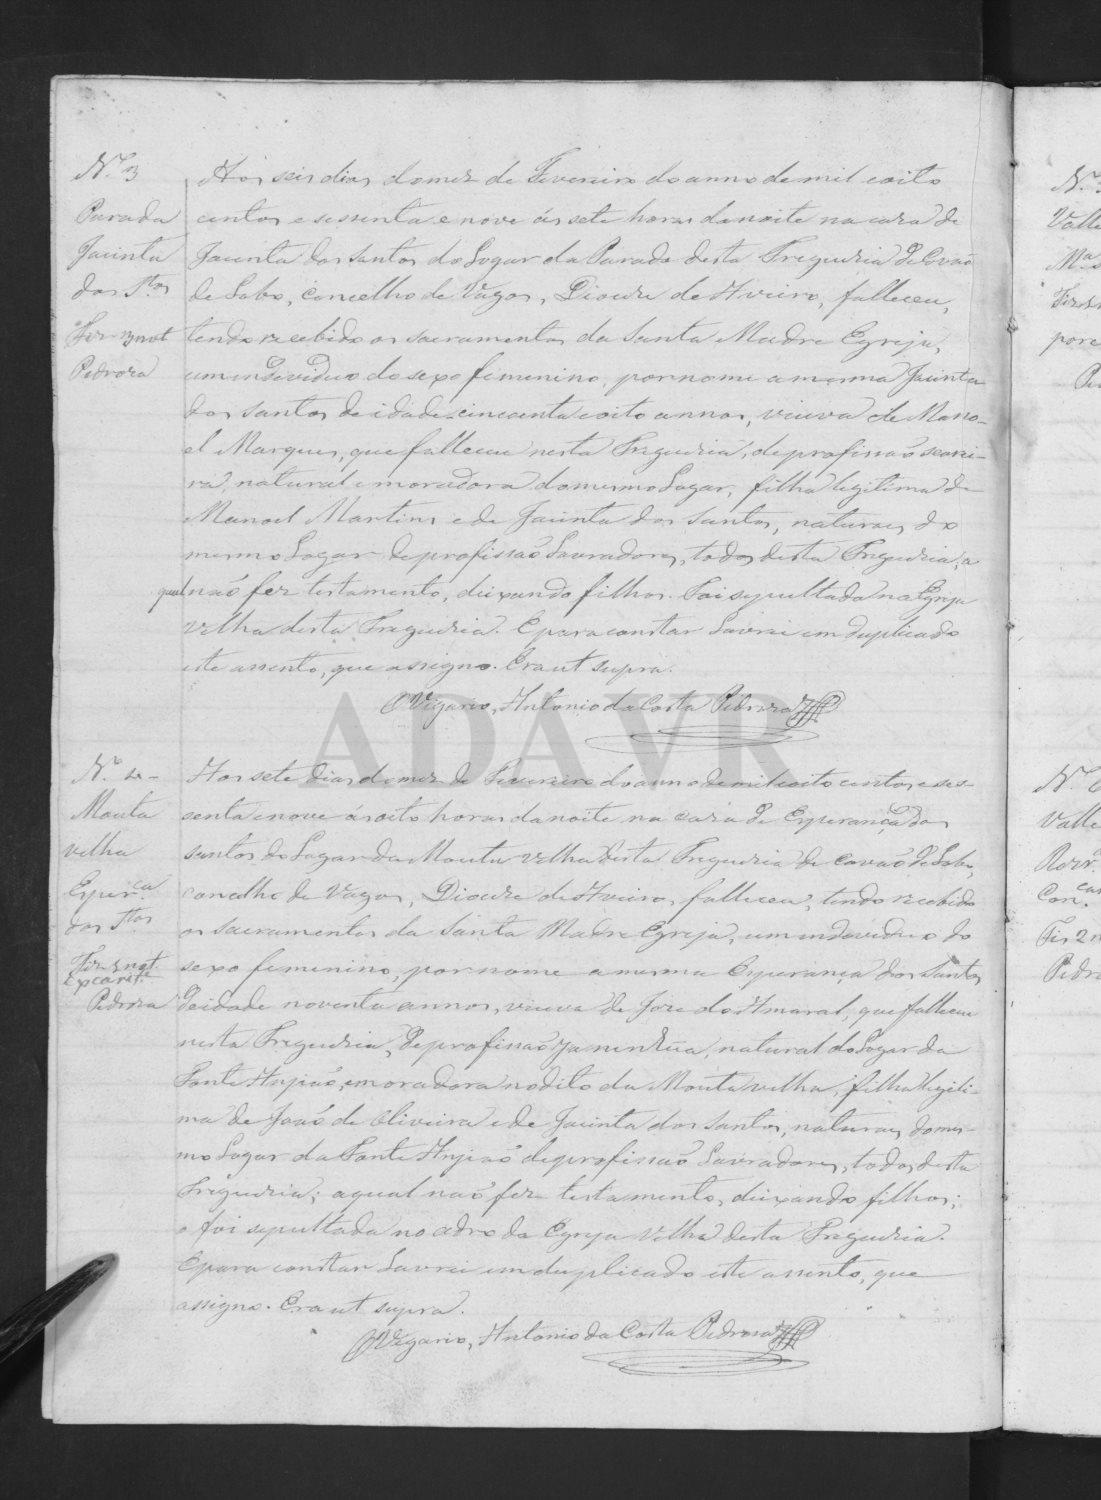 N.º 3
Parada
Jacinta
dos S.tos
Fez 3 not
Pedroza
Aos seis dias do mez de Fevereiro do anno de mil e oito
centos e sessenta e nove ás sete horas da noite na caza de
Jacinta dos Santos do Lugar da Parada desta Freguezia de Covaõ
de Lobo, concelho de Vagos, Dioceze de Aveiro, falleceu,
tendo recebido os sacramentos da Santa Madre Egreja,
um individuo do sexo femenino, por nome a mesma Jacinta
dos Santos de idade cincoenta e oito annos, viuva de Mano-
el Marques, que falleceu nesta Freguezia, de profissaõ
natural e moradora do mesmo Lugar, filha legitima de
Manoel Martins e de Jacinta dos Santos, naturaes do
mesmo Lugar de profissaõ Lavradores, todos desta Freguezia, a
qual naõ fez testamento, deixando filhos. Foi sepultada na Egreja
velha desta Freguezia. E para constar Lavrei em duplicado
este assento, que assigno. Era ut supra.
O Vigario, Antonio da Costa Pedroza
ADAVR
N.º 4
Mouta
velha
Esper.ça
dos S.tos
Fez 3 not.
ex carit.e
Pedroza
Aos sete dias do mez de Fevereiro do anno de mil e oito centos e ses-
senta e nove ás oito horas da noite na caza de Esperança dos
santos do Lugar da Mouta velha desta Freguezia de Covaõ de Lobo,
concelho de Vagos, Dioceze de Aveiro, falleceu, tendo recebido
os sacramentos da Santa Madre Egreja, um endeveduo do
sexo femenino, por nome a mesma Esperança dos Santos
de idade noventa annos, viuva de Joze do Amaral, que falleceu
nesta Freguezia, de profissaõ natural do Lugar da
Fonte Anjiaõ, e moradora no dito da Mouta velha, filha legiti-
ma de Joaõ de Oliveira e de Jacinta dos Santos, naturaes do mes-
mo Lugar da Fonte Anjiaõ de profissaõ Lavradores, todos desta
Freguezia; a qual naõ fez testamento, deixando filhos;
e foi sepultada no adro da Egreja Velha desta Freguezia.
E para constar Lavrei em duplicado este assento, que
assigno. Era ut supra.
O Vigario, Antonio da Costa Pedroza